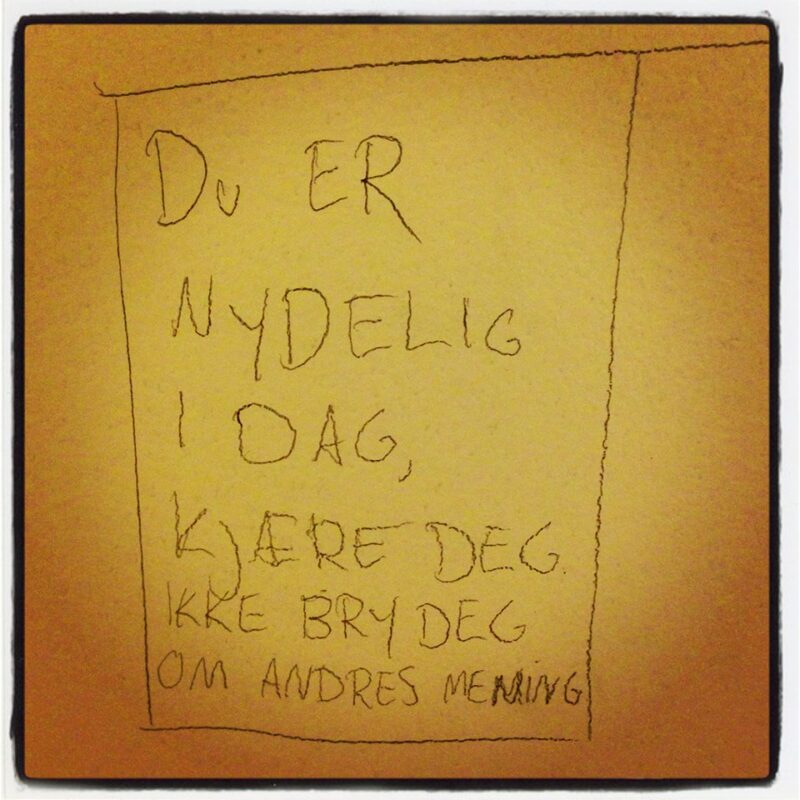 Du ER
NYDELIG
I DAG,
KJÆRE DEG.
IKKE BRY DEG
OM ANDRES MENING